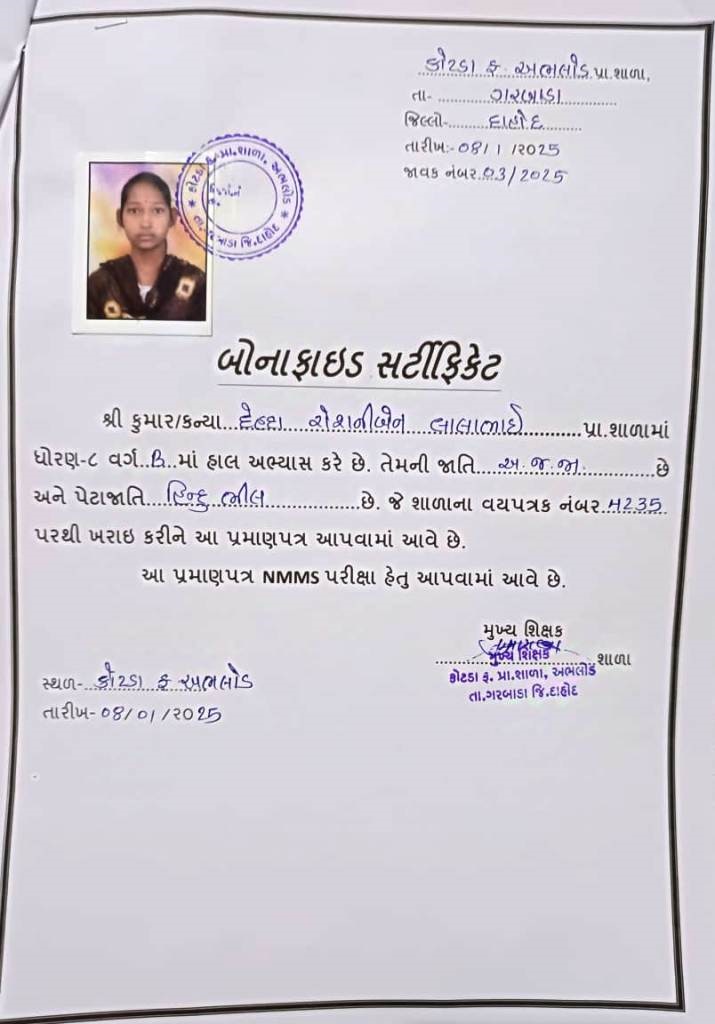 કોટડા ફ. અભલોડ પ્રા.શાળા,
તા- ગરબાડા
જિલ્લો- દાહોદ
તારીખ:- 08/1/2025
જાવક નંબર.03/2025
* કોટડા ફ. પ્રા.શાળા, અભલોડ * તા.ગરબાડા જિ.દાહોદ
બોનાફાઇડ સર્ટીફિકેટ
શ્રી કુમાર/કન્યા રોશનીબેન લાલાભાઇ પ્રા.શાળામાં
ધોરણ-૮ વર્ગ B માં હાલ અભ્યાસ કરે છે. તેમની જાતિ અ.જ.જા. છે
અને પેટાજાતિ હિન્દુ ભીલ છે. જે શાળાના વયપત્રક નંબર 4235
પરથી ખરાઇ કરીને આ પ્રમાણપત્ર આપવામાં આવે છે.
આ પ્રમાણપત્ર NMMS પરીક્ષા હેતુ આપવામાં આવે છે.
મુખ્ય શિક્ષક
મુખ્ય શિક્ષક શાળા
કોટડા ફ. પ્રા.શાળા, અભલોડ
તા.ગરબાડા જિ.દાહોદ
સ્થળ- કોટડા ફ અભલોડ
તારીખ- 08/01/૨૦25